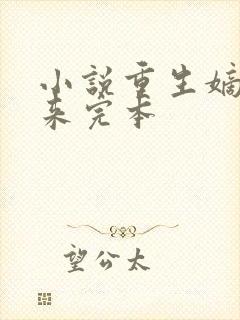 小说重生嫡
来完本
望公太